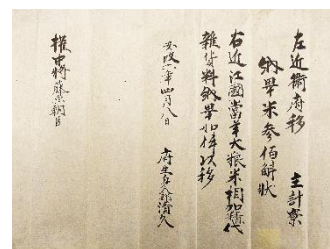 左近衛府移　主計寮
納畢米参佰斛状
右近江國當年大粮米相加種代
雑貨料納畢如件以移
安政六年四月八日　府生
權中将藤原朝臣